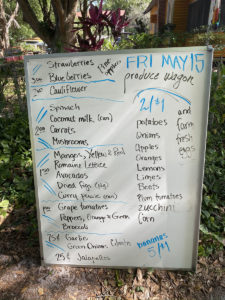 FRI MAY 15
produce wagon
Strawberries
Blueberries
Cauliflower
Spinach
Coconut milk (can)
Carrots
Mushrooms
Mangos, Yellow & Red
Romaine Lettuce
Avocados
Dried Figs (pkg)
Curry, (can)
Grape tomatoes
Peppers, Orange & Green
Broccoli
75¢ Garlic
Green Onions
25¢ Jalapeños
2/$1
potatoes
Onions
Apples
Oranges
Lemons
Limes
Beets
Plum tomatoes
zucchini
Corn
and
farm
fresh
eggs
bananas
5/$1